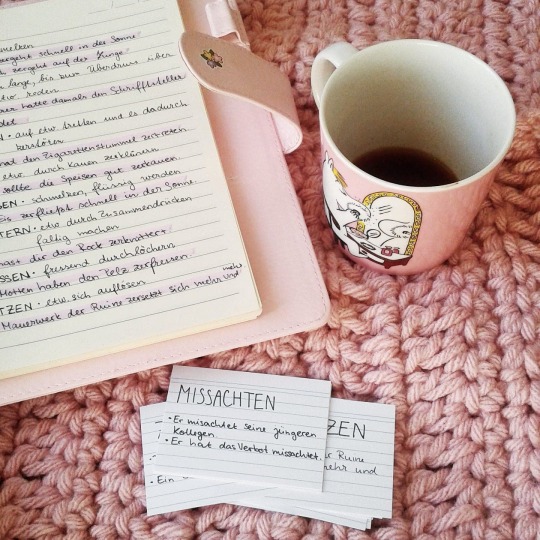 schmelzen
zergeht schnell in der Sonne
zergeht auf der Zunge
lange, bis zum Überdruss über
etw. reden
hatte damals den Schriftsteller
auf etw. treten und es dadurch
zerstören
hat den Zigarettenstummel zertreten
etw. durch Kauen zerkleinern
sollte die Speisen gut zerkauen
SEN • schmelzen, flüssig werden
Eis zerfließt schnell in der Sonne.
TERN • etw. durch Zusammendrücken
faltig machen
hast dir den Rock zerknittert
SSEN • fressend durchlöchern
Motten haben den Pelz zerfressen
TZEN • etw. sich auflösen
Mauerwerk der Ruine zersetzt sich mehr und
mehr
MISSACHTEN
• Er misachtet seine jüngeren
Kollegen.
• Er hat das Verbot missachtet.
ZEN
r Ruine
mehr und
• Ein